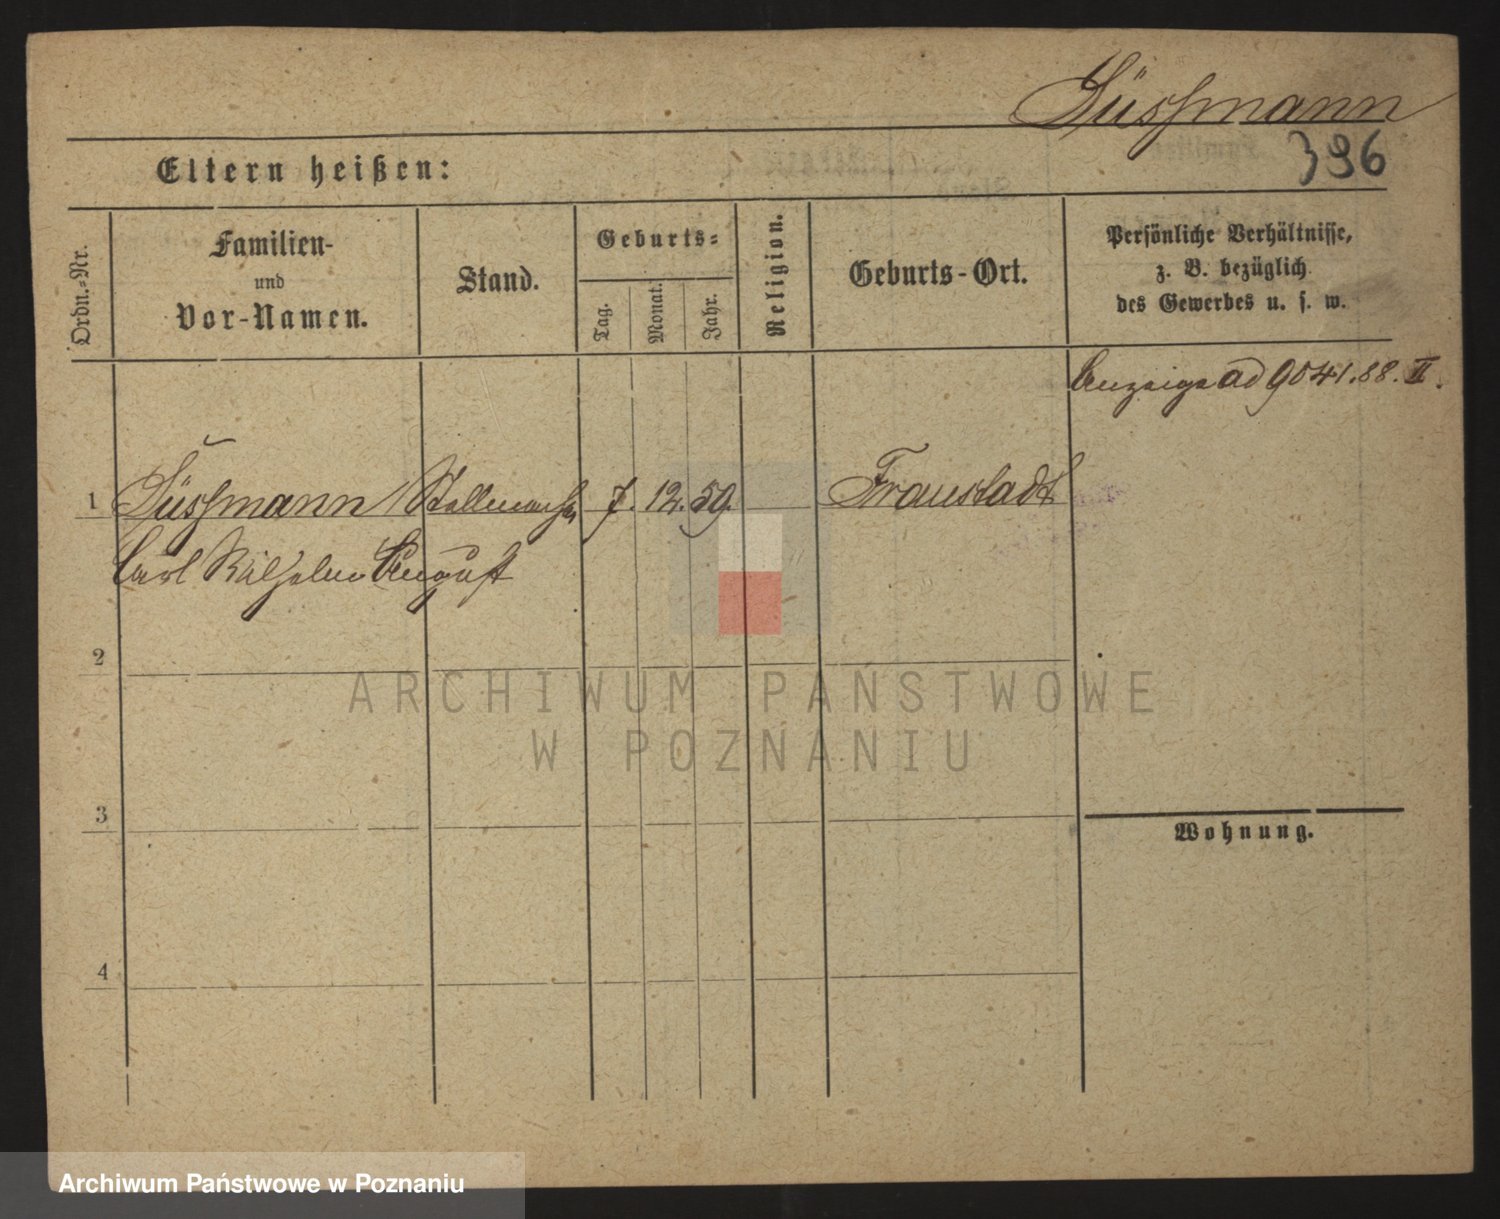 Süssmann
396
Eltern heißen:
Ordn.-Nr.
Familien-
und
Vor-Namen.
Stand.
Geburts-
Tag.
Monat.
Jahr.
Religion.
Geburts-Ort.
Persönliche Verhältnisse,
z. B. bezüglich
des Gewerbes u. s. w.
Anzeige ad 9041.88. II.
1 Süssmann Stellmacher 7. 12. 59. Fraustadt
Carl Wilhelm August
2
ARCHIWUM PAŃSTWOWE
W POZNANIU
3
Wohnung.
4
Archiwum Państwowe w Poznaniu